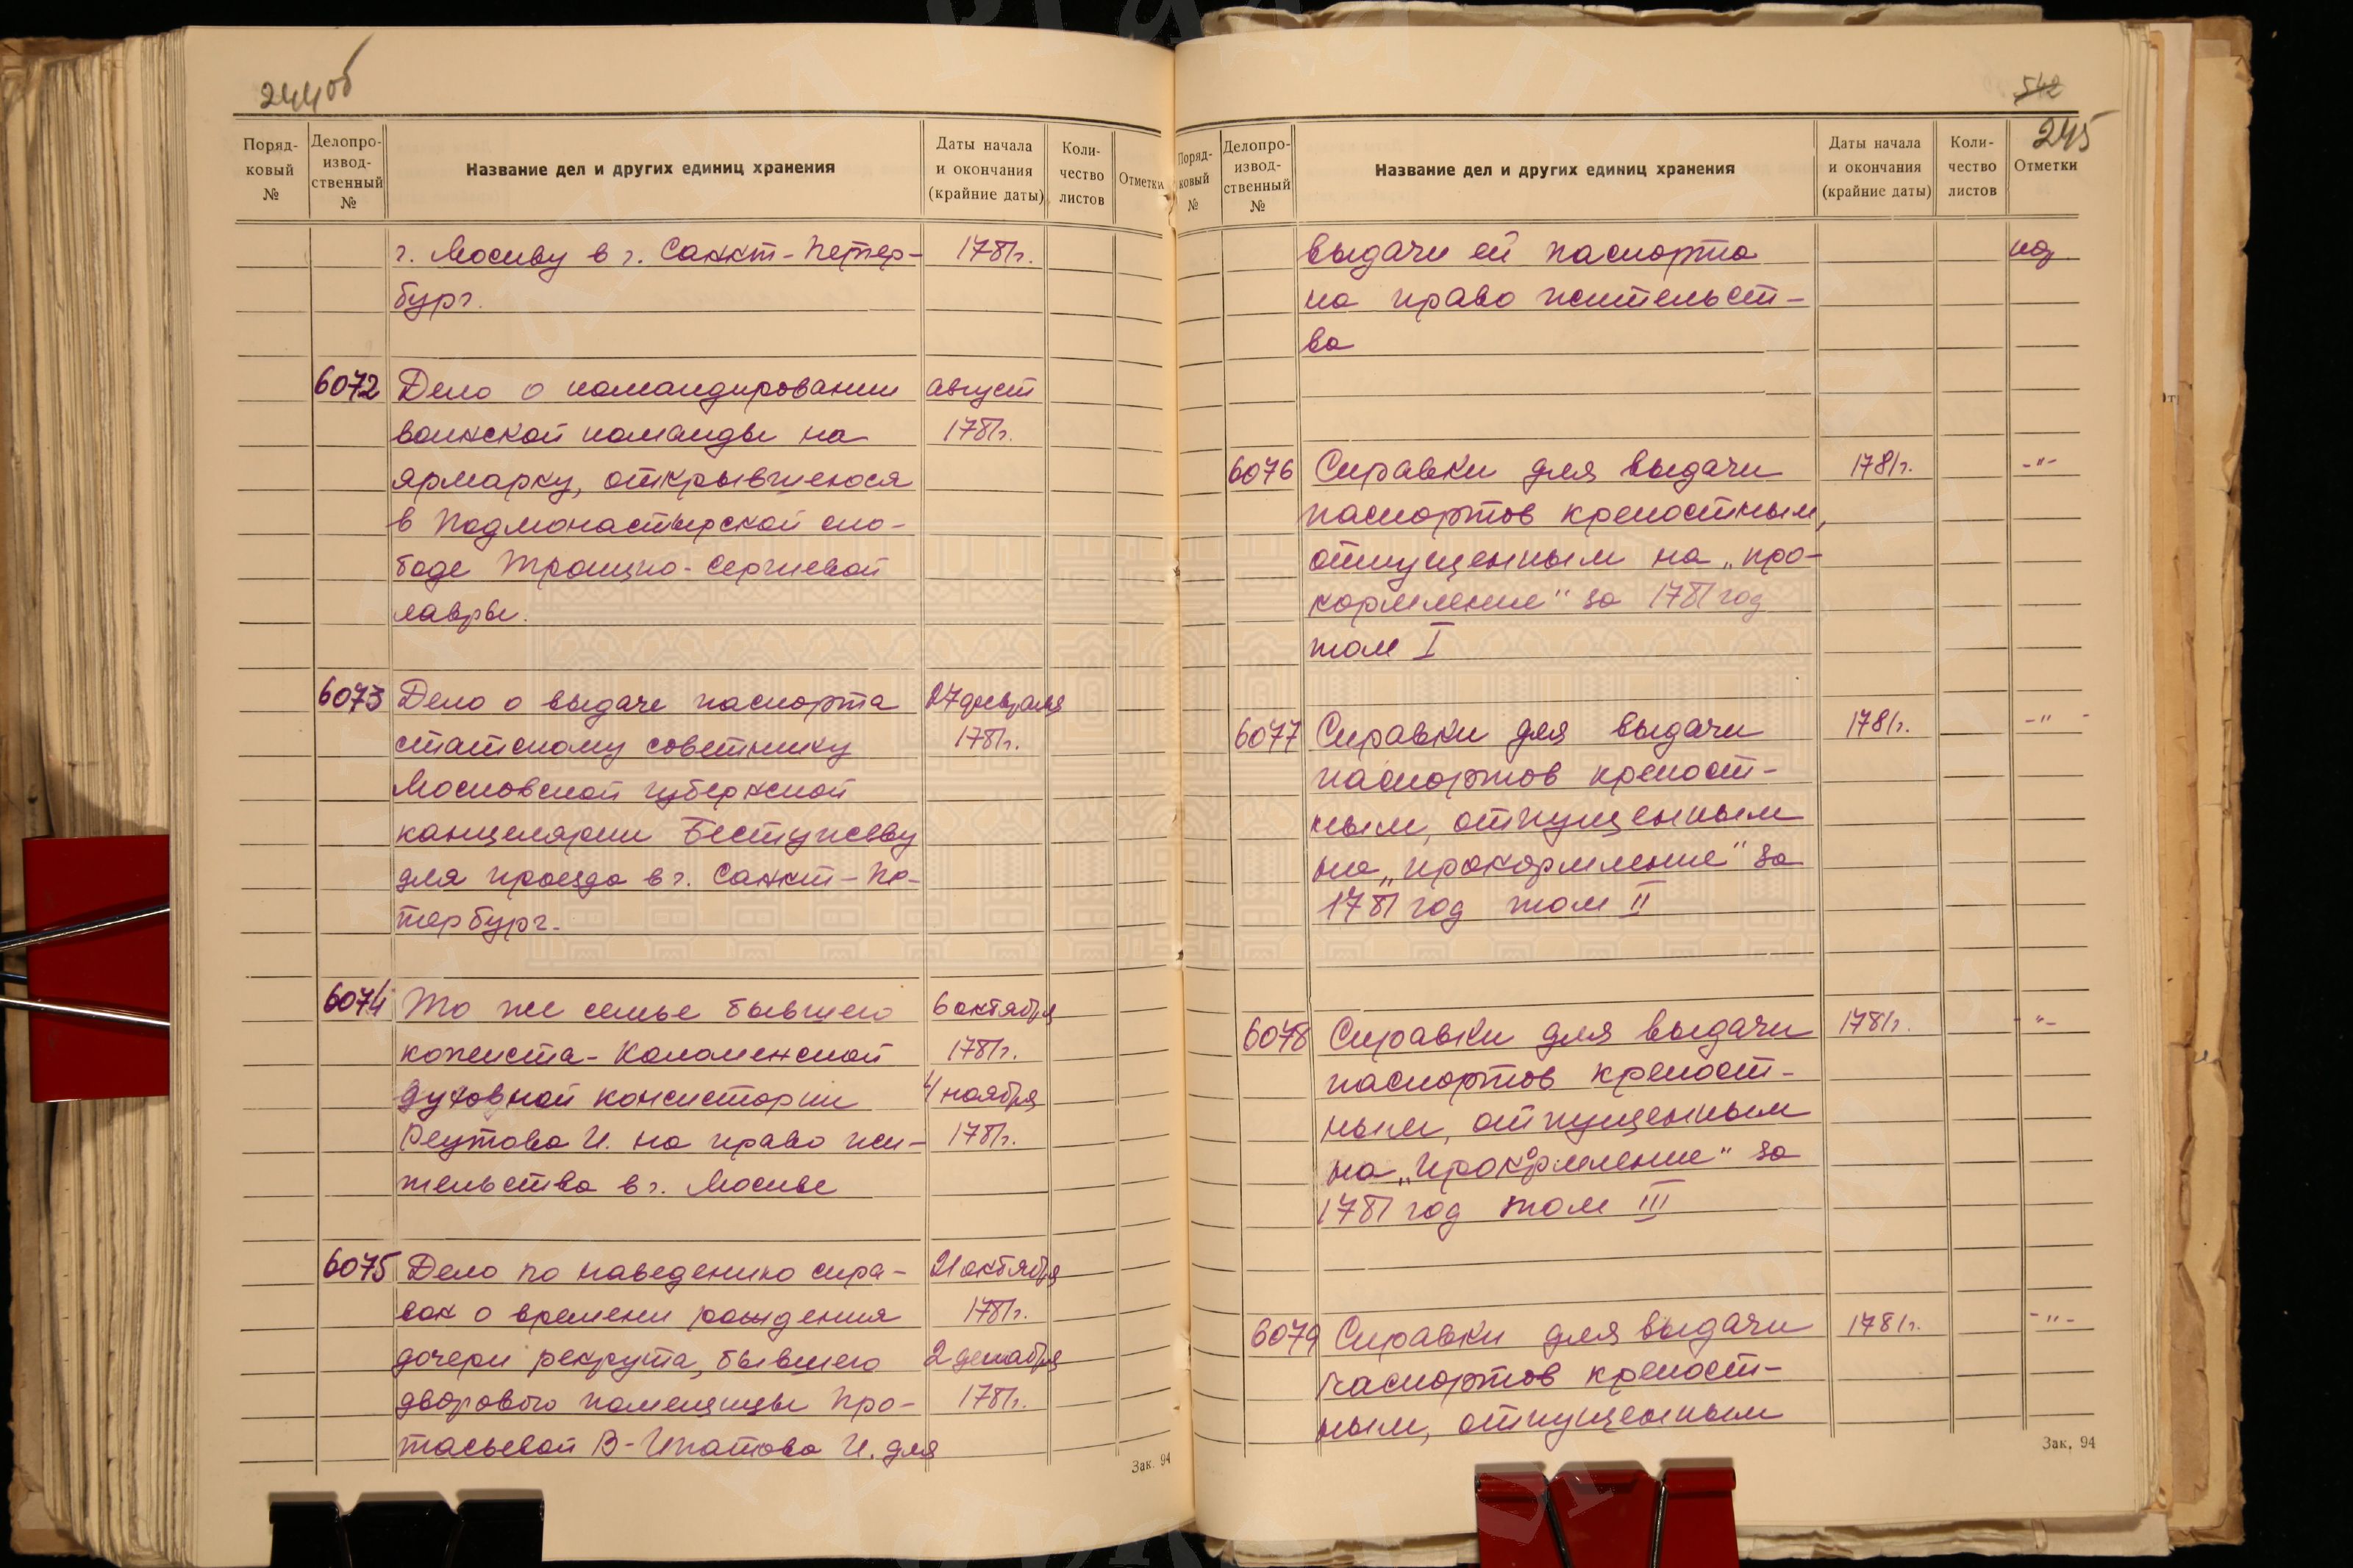 244об
Поряд-
ковый
№
Делопро-
извод-
ственный
№
Название дел и других единиц хранения
Даты начала
и окончания
(крайние даты)
Коли-
чество
листов
Отметки
г. Москву в г. Санкт-Петер- 1781г.
бург.
6072 Дело о командировании август
воинской команды на 1781г.
ярмарку, открывшеюся
в Подмонастырской сло-
боде Троицко-Сергиевой
лавры.
6073 Дело о выдаче паспорта 27 февраля
статскому советнику 1781г.
Московской губернской
канцелярии Бестужеву
для проезда в г. Санкт-Пе-
тербург.
6074 То же семье бывшего 6 октября
копеиста-Коломенской 1781г.
духовной консистории 4 ноября
Реутова И. на право жи- 1781г.
тельства в г. Москве
6075 Дело по наведению спра- 21 октября
вок о времени рождения 1781г.
дочери рекрута, бывшего 2 декабря
дворового помещицы Про- 1781г.
тасьевой В-Ипатова И. для
Зак. 94
542
245
Поряд-
ковый
№
Делопро-
извод-
ственный
№
Название дел и других единиц хранения
Даты начала
и окончания
(крайние даты)
Коли-
чество
листов
Отметки
выдачи ей паспорта
на право жительст-
ва
6076 Справки для выдачи 1781г. -"-
паспортов крепостным,
отпущенным на „про-
кормление" за 1781 год
том I
6077 Справки для выдачи 1781г. -"-
паспортов крепост-
ным, отпущенным
на „прокормление" за
1781 год том II
6078 Справки для выдачи 1781г. -"-
паспортов крепост-
ным, отпущенным
на „прокормление" за
1781 год том III
6079 Справки для выдачи 1781г. -"-
паспортов крепост-
ным, отпущенным
Зак. 94